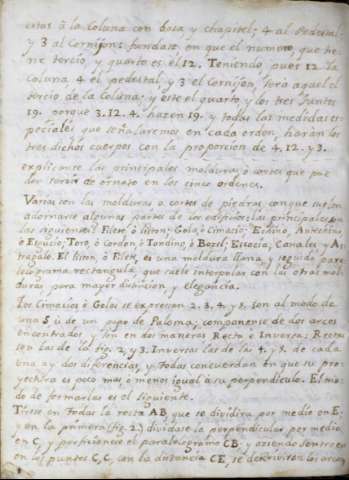 estas â la Coluna con basa y chapitel; 4 al Pedestal
y 3 al Cornison: fundase en que el numero, que tie-
ne tercio, y quarto es el 12. Teniendo pues 12 la
Coluna 4 el pedestal y 3 el Cornison, sera aquel el
tercio de la Coluna; y este el quarto, y los tres juntos
19. porque 3. 12. 4. hazen 19. y todas las medidas es-
peciales que señalaremos en cada orden, haran los
tres dichos cuerpos con la proporcion de 4, 12, y 3.
explicanse las principales molduras, ò cortes que pue
den servir de ornato en los cinco ordenes.
Varias son las molduras o cortes de piedras, con que suelen
adornarse algunas partes de los edificios: las principales son
las siguientes: Filete, ô liston; Gola, ô Cimacio; Equino,
ô Esquicio; Toro, ô Cordon, ô Tondino, ô Bozel; Escocia; Canales y As-
tragalo. El liston, ô Filete, es una moldura llana, y seguida para-
lelograma rectangula que suele interpolar con las otras mol-
duras para mayor distincion y elegancia.
Los Cimacios ô Golas se expresan 2. 3. 4. y 5. son al modo de
una S ù de un papo de Paloma; componense de dos arcos
encontrados y son en dos maneras Recta è Inversa: Rectas
son las de la fig. 2. y 3. Inversas las de las 4. y 5. de cada
una ay dos diferencias, y todas concuerdan en que su pro-
yectura es poco mas, o menos igual a su perpendiculo. El mo-
do de formarlas es el siguiente.
Tirese en todas la recta AB, que se dividira por medio en E,
y en la primera (fig. 2.) dividase la perpendicular por medio
en C, y perficionese el paralelogramo CB. y haziendo centro
en los puntos C, C, con la distancia CE, se descriviran los arcos